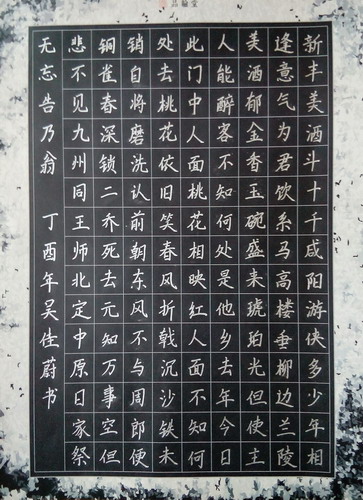 新丰美酒斗十千咸阳游侠多少年相
逢意气为君饮系马高楼垂柳边兰陵
美酒郁金香玉碗盛来琥珀光但使主
人能醉客不知何处是他乡去年今日
此门中人面桃花相映红人面不知何
处去桃花依旧笑春风折戟沉沙铁未
销自将磨洗认前朝东风不与周郎便
铜雀春深锁二乔死去元知万事空但
悲不见九州同王师北定中原日家祭
无忘告乃翁 丁酉年吴佳蔚书